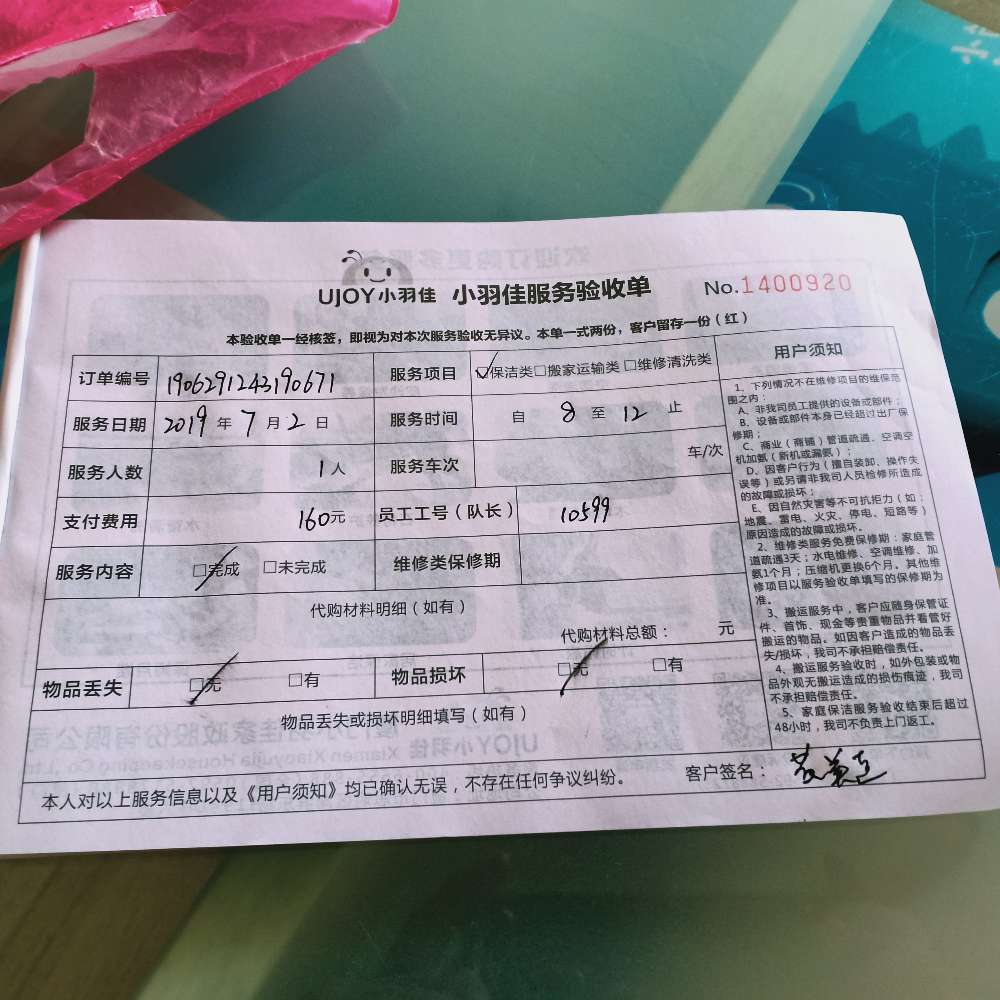 UJOY小羽佳 小羽佳服务验收单 No.1400920
本验收单一经核签，即视为对本次服务验收无异议。本单一式两份，客户留存一份（红）
订单编号 190629124319067 1 服务项目 ☑保洁类□搬家运输类□维修清洗类
服务日期 2019年7月2日 服务时间 自 8 至 12 止
服务人数 1人 服务车次 车/次
支付费用 160元 员工工号（队长） 10599
服务内容 ☑完成 □未完成 维修类保修期
代购材料明细（如有）
代购材料总额： 元
物品丢失 ☑无 □有 物品损坏 ☑无 □有
物品丢失或损坏明细填写（如有）
本人对以上服务信息以及《用户须知》均已确认无误，不存在任何争议纠纷。 客户签名：
用户须知
1、下列情况不在维修项目的维保范
围之内：
A、非我司员工提供的设备或部件；
B、设备或部件本身已经超过出厂保
修期；
C、商业（商铺）管道疏通、空调空
机加氨（新机或漏氨）；
D、因客户行为（擅自装卸、操作失
误等）或另请非我司人员检修所造成
的故障或损坏；
E、因自然灾害等不可抗拒力（如：
地震、雷电、火灾、停电、短路等）
原因造成的故障或损坏。
2、维修类服务免费保修期：家庭管
道疏通3天；水电维修、空调维修、加
氨1个月；压缩机更换6个月。其他维
修项目以服务验收单填写的保修期为
准。
3、搬运服务中，客户应随身保管证
件、首饰、现金等贵重物品并看管好
搬运的物品。如因客户造成的物品丢
失/损坏，我司不承担赔偿责任。
4、搬运服务验收时，如外包装或物
品外观无搬运造成的损伤痕迹，我司
不承担赔偿责任。
5、家庭保洁服务验收结束后超过
48小时，我司不负责上门返工。